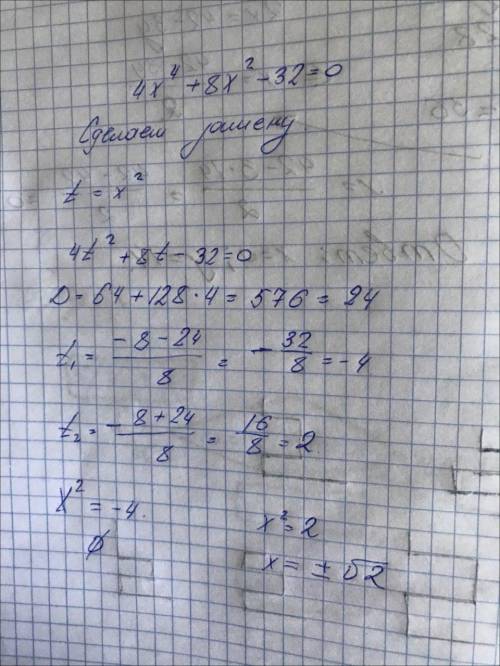 4x⁴ + 8x² - 32 = 0
Сделаем замену
t = x²
4t² + 8t - 32 = 0
D = 64 + 128 · 4 = 576 = 24
t₁ = (-8 - 24)/8 = -32/8 = -4
t₂ = (-8 + 24)/8 = 16/8 = 2
x² = -4.
∅
x² = 2
x = ± √2